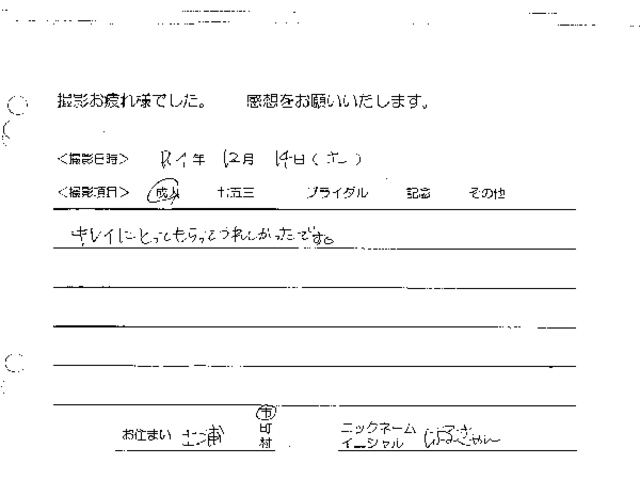 撮影お疲れ様でした。 感想をお願いいたします。
<撮影日時> 年 12月 14日( )
<撮影項目> 成人 七五三 ブライダル 記念 その他
キレイにとってもらってうれしかったです。
お住まい 土浦 市 町 村
ニックネーム イニシャル